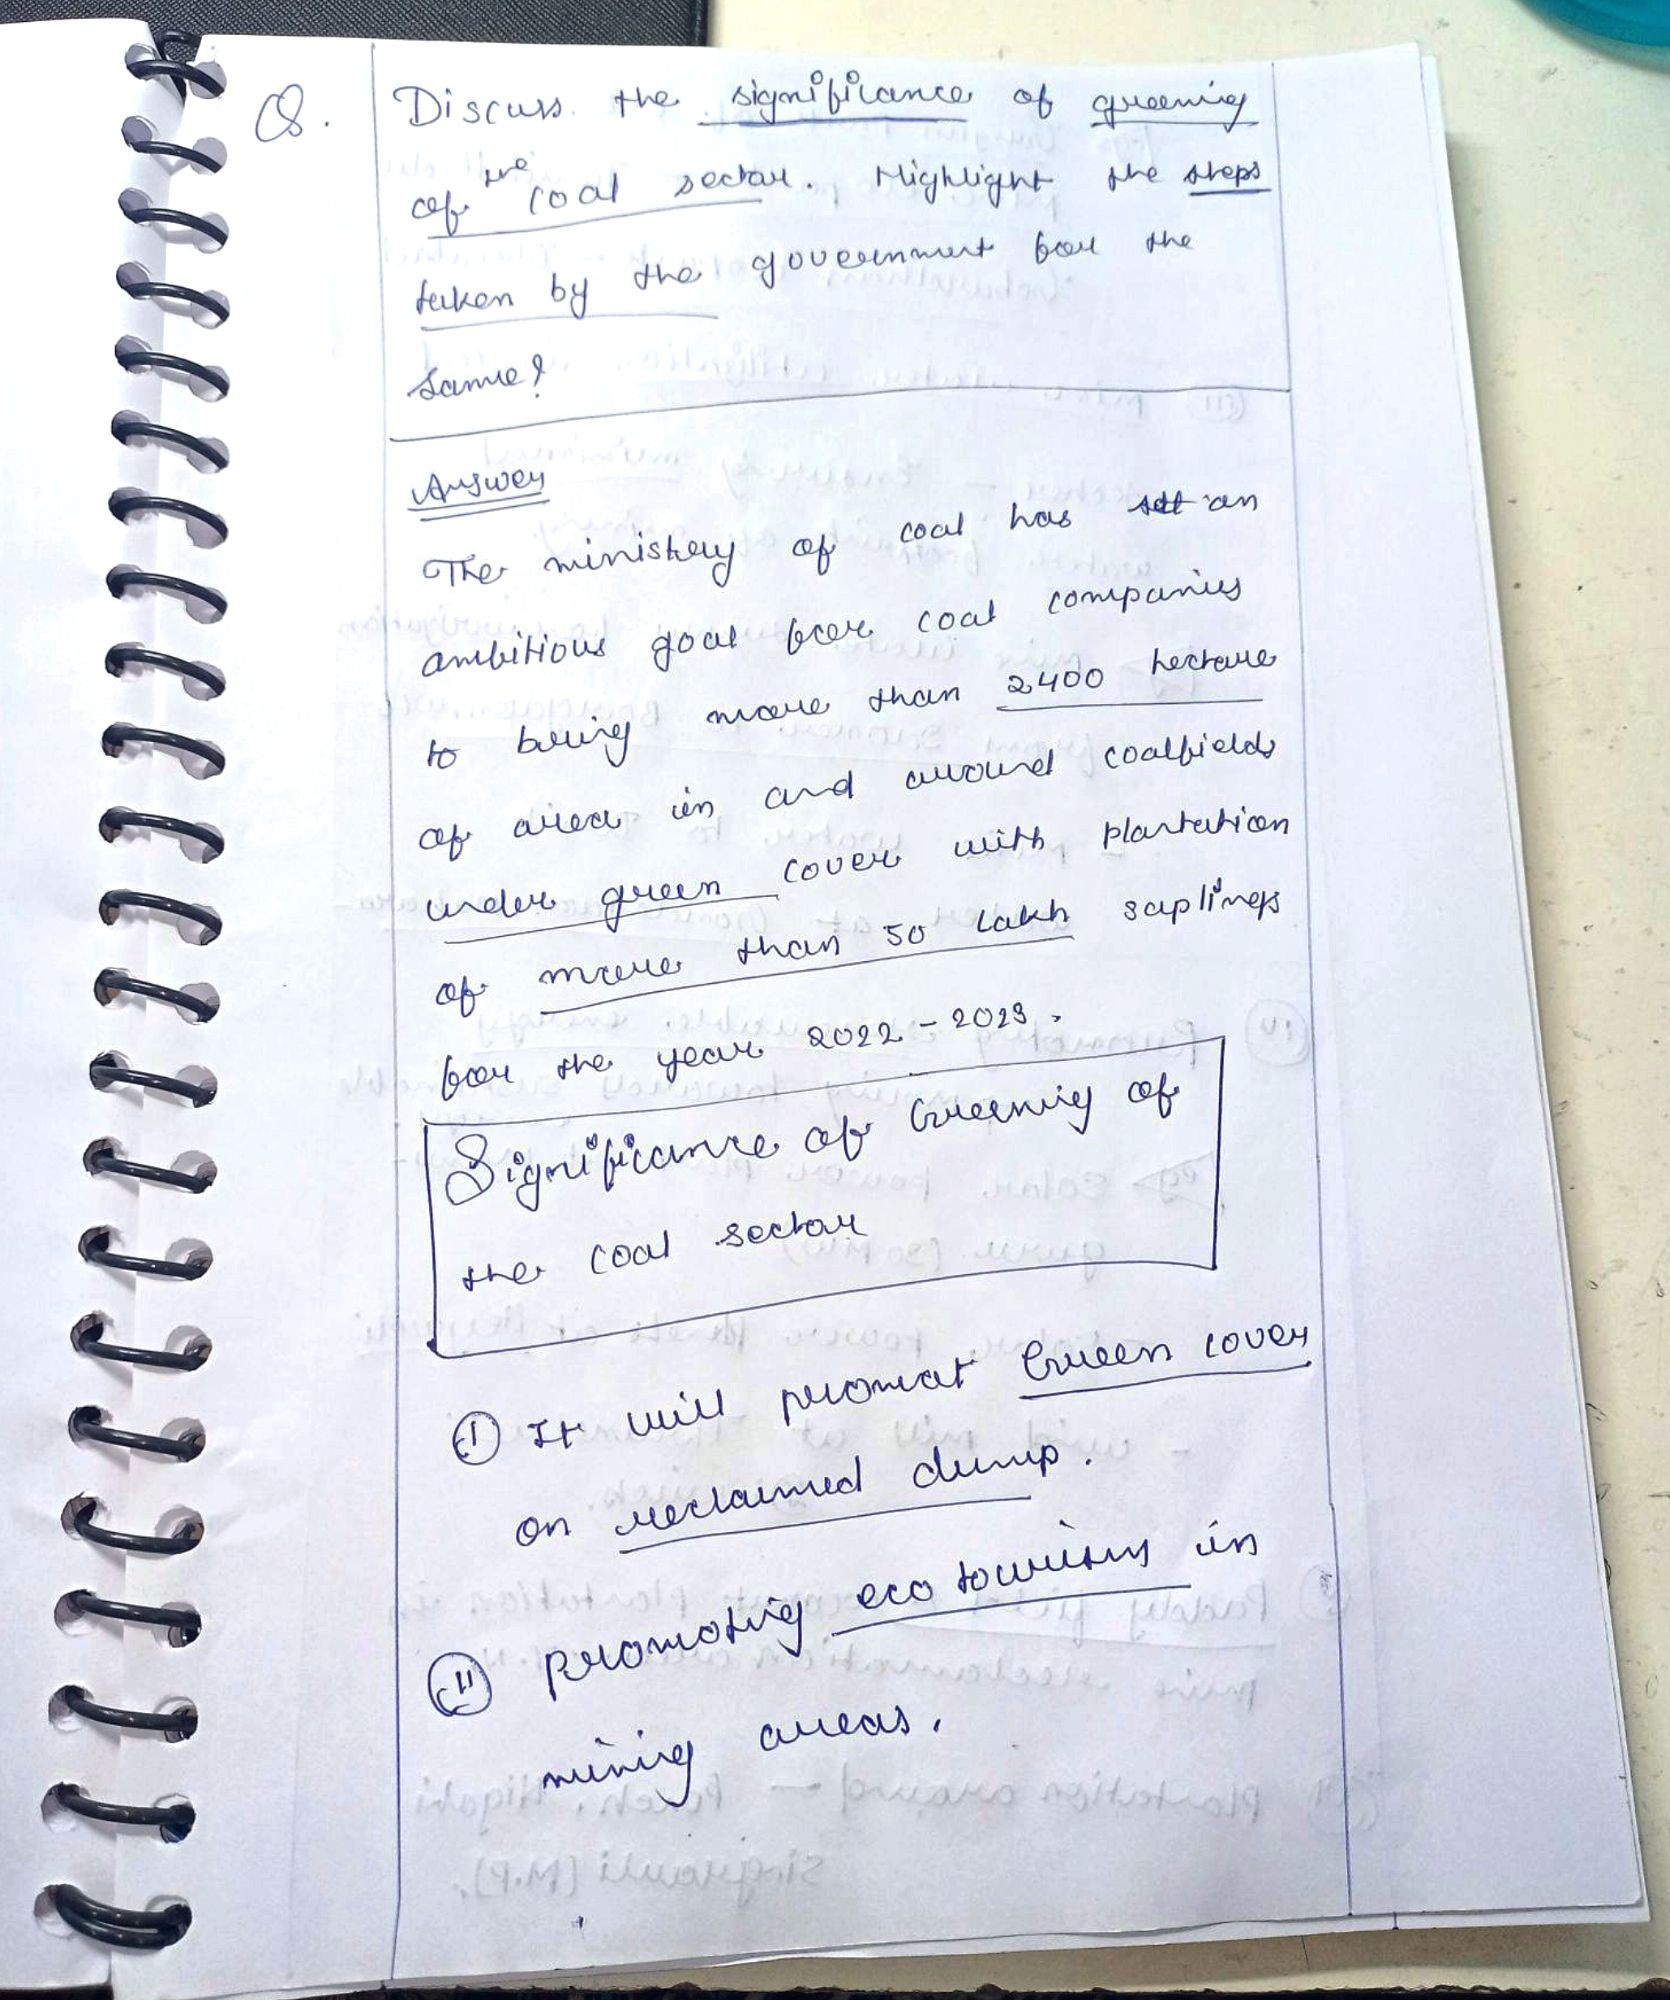 Q. Discuss the significance of greening
of the coal sector. Highlight the steps
taken by the government for the
same?
Answer
The ministry of coal has set an
ambitious goal for coal companies
to bring more than 2400 hectare
of area in and around coalfields
under green cover with plantation
of more than 50 lakh saplings
for the year 2022-2023.
Significance of Greening of
the coal sector
(I) It will promot Green cover
on reclaimed dump.
(II) promoting eco tourism in
mining areas.